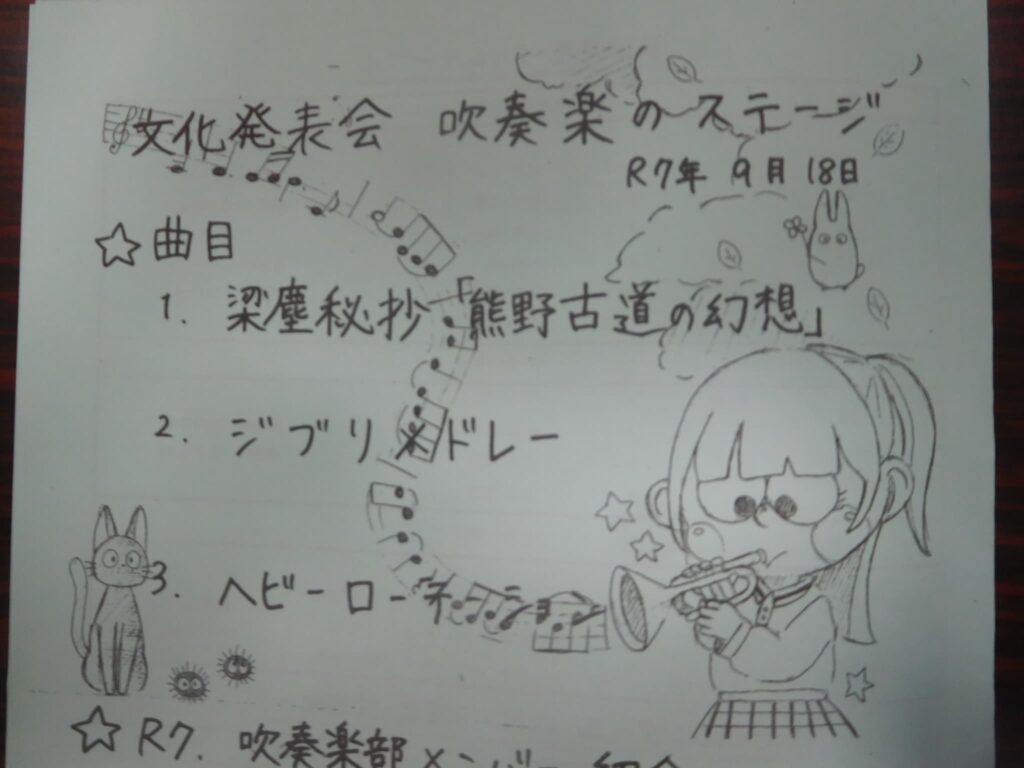 文化発表会 吹奏楽のステージ
R7年 9月 18日
☆曲目
1. 梁塵秘抄「熊野古道の幻想」
2. ジブリメドレー
3. ヘビーローテーション
☆R7. 吹奏楽部メンバー紹介